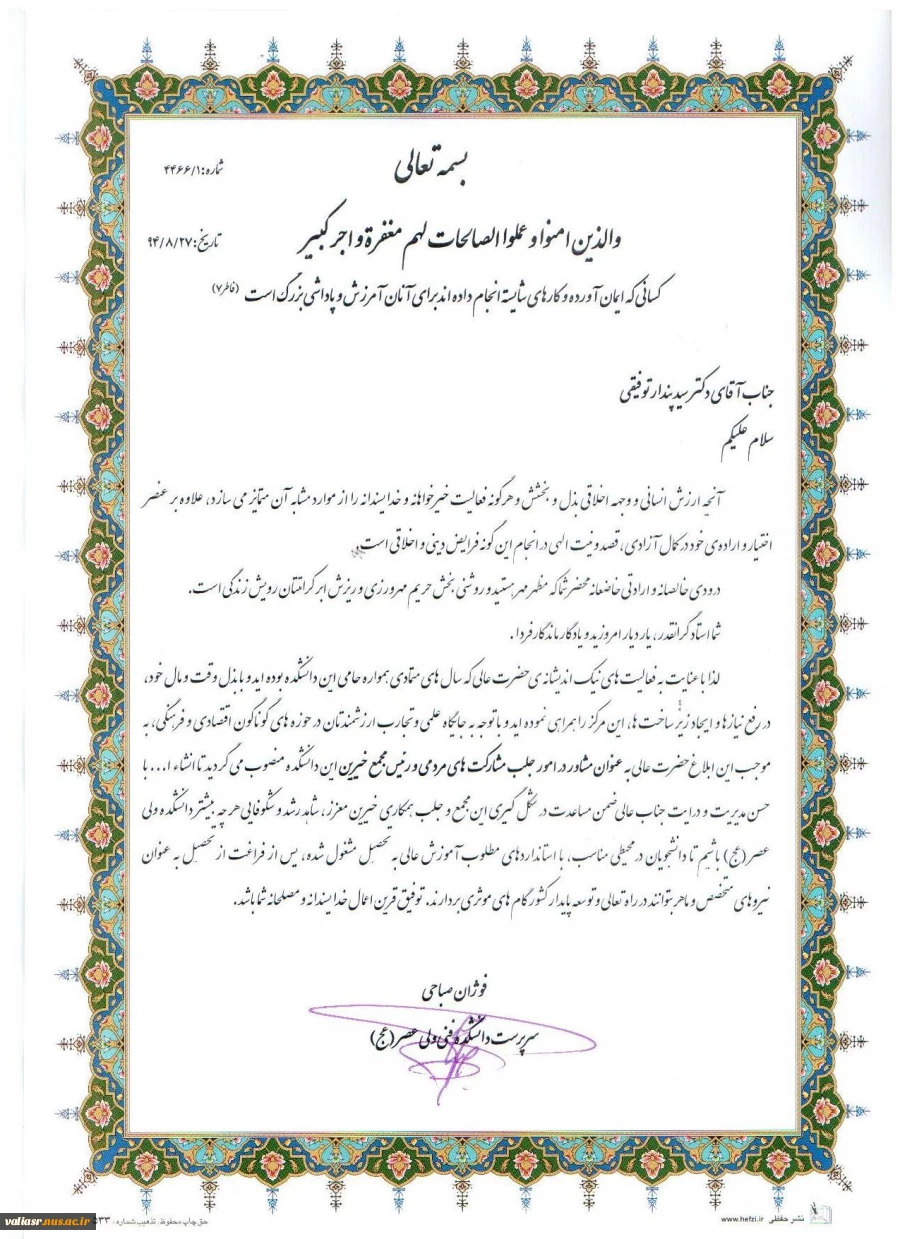 بسمه تعالی
شماره: ۴۴۶۶/۱
والذین امنوا و عملوا الصالحات لهم مغفرة و اجر کبیر
تاریخ: ۹۴/۸/۲۷
کسانی که ایمان آورده و کارهای شایسته انجام داده اند برای آنان آمرزش و پاداشی بزرگ است (فاطر۷)
جناب آقای دکتر سید پندار توفیقی
سلام علیکم
آنچه ارزش انسانی و وجهه اخلاقی بذل و بخشش و هرگونه فعالیت خیرخواهانه و خداپسندانه را از موارد مشابه آن متمایز می سازد، علاوه بر عنصر
اختیار و اراده ی خود در کمال آزادی، قصد و نیت الهی در انجام این گونه فرایض دینی و اخلاقی است.
درودی خالصانه و ارادتی خاضعانه محضر شما که مظهر مهر هستید و روشنی بخش حریم مهرورزی و ریزش ابر کرامتتان رویش زندگی است.
شما استاد گرانقدر، یار دیار امروزید و یادگار ماندگار فردا.
لذا با عنایت به فعالیت های نیک اندیشانه ی حضرت عالی که سال های متمادی همواره حامی این دانشکده بوده اید و با بذل وقت و مال خود،
در رفع نیازها و ایجاد زیر ساخت ها، این مرکز را همراهی نموده اید و با توجه به جایگاه علمی و تجارب ارزشمندتان در حوزه های گوناگون اقتصادی و فرهنگی، به
موجب این ابلاغ حضرت عالی به عنوان مشاور در امور جلب مشارکت های مردمی و رئیس مجمع خیرین این دانشکده منصوب می گردید تا انشاء ا... با
حسن مدیریت و درایت جناب عالی ضمن مساعدت در شکل گیری این مجمع و جلب همکاری خیرین معزز، شاهد رشد و شکوفایی هر چه بیشتر دانشکده ولی
عصر(عج) باشیم تا دانشجویان در محیطی مناسب، با استانداردهای مطلوب آموزش عالی به تحصیل مشغول شده، پس از فراغت از تحصیل به عنوان
نیروهای متخصص و ماهر بتوانند در راه تعالی و توسعه پایدار کشور گام های موثری بردارند. توفیق قرین اعمال خداپسندانه و مصلحانه شما باشد.
فوژان صباحی
سرپرست دانشکده فنی ولی عصر(عج)
نشر حفظی www.hefzi.ir
حق چاپ محفوظ. تذهیب شماره: ۵۳۳
valiasr.nus.ac.ir